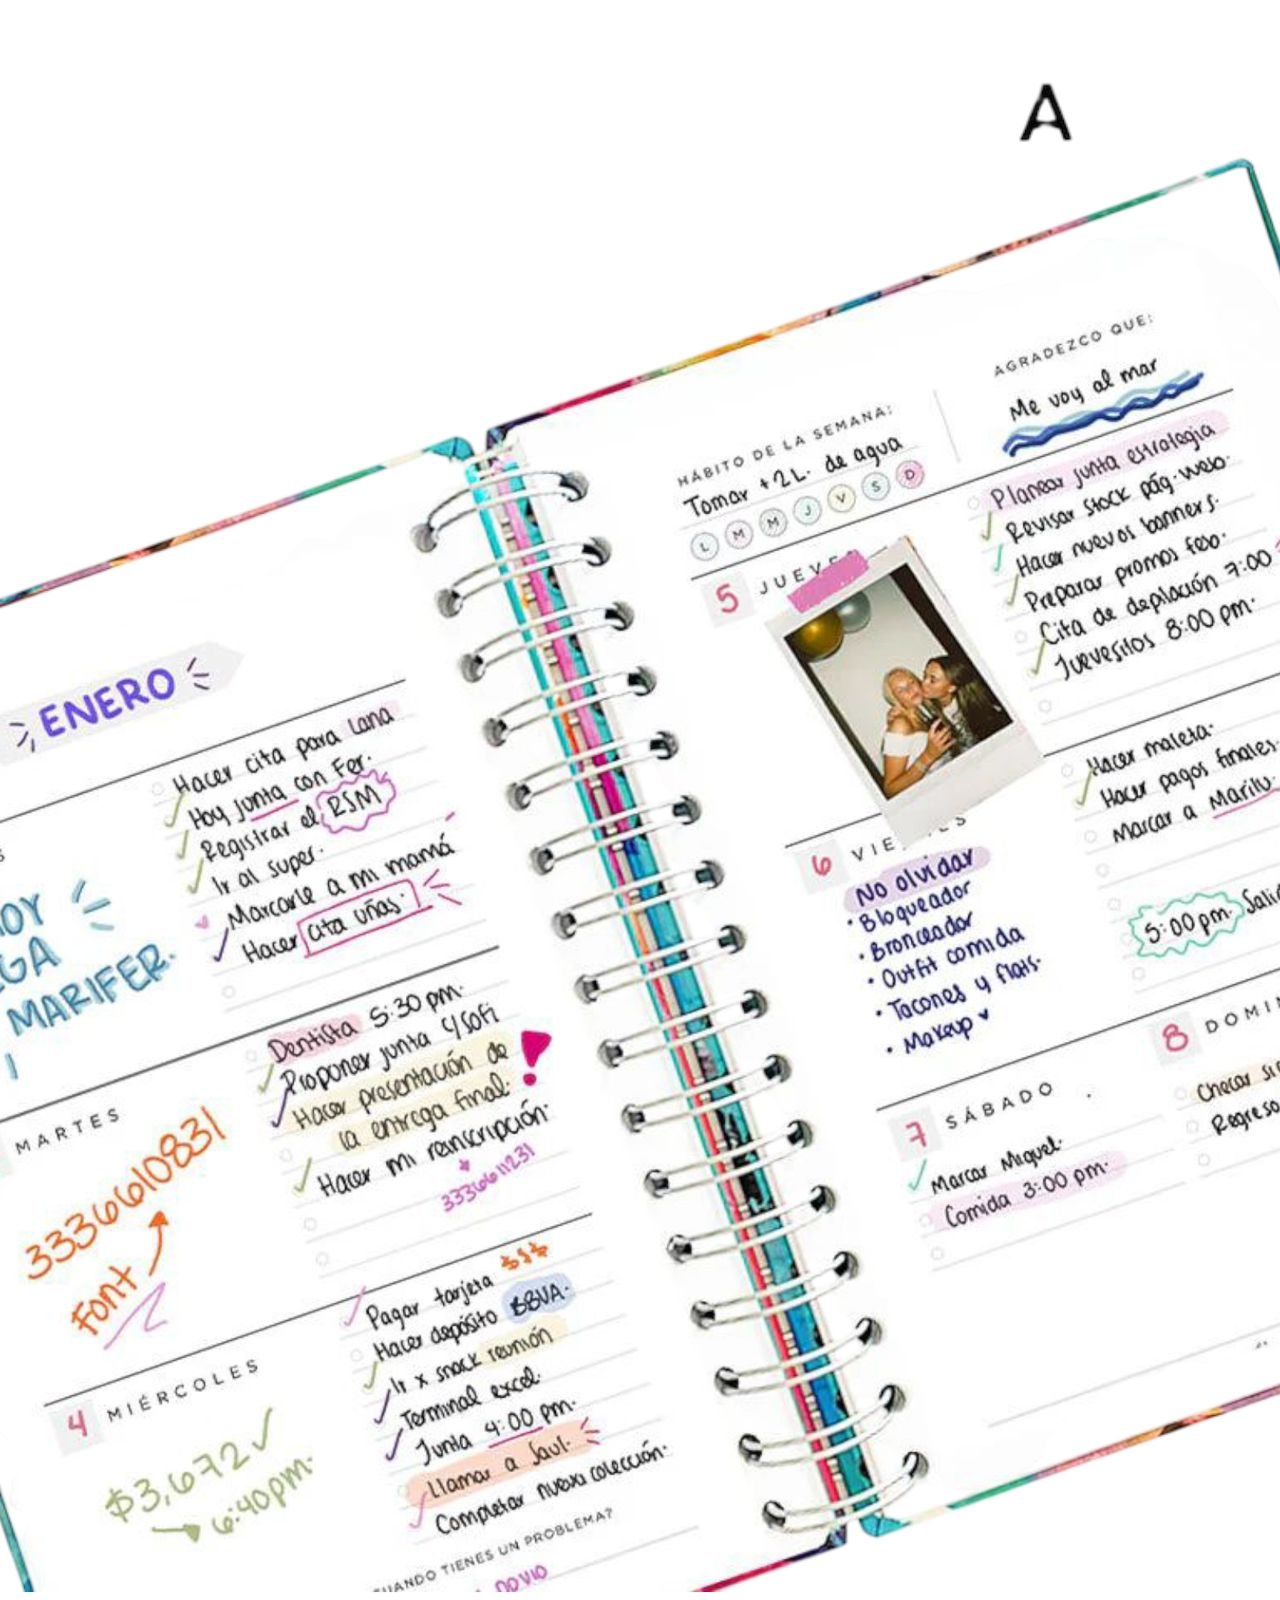 A
ENERO
Hacer cita para Lana
Hoy junta con Fer.
Registrar el RSM
Ir al super.
Marcarle a mi mamá
Hacer cita uñas.
MARIFER.
MARTES
3336610831
Font
Dentista 5:30 pm.
Proponer junta y Sofi
Hacer presentación de
la entrega final.
Hacer mi reinscripción.
3336611231
4 MIÉRCOLES
$3,672
6:40pm.
Pagar tarjeta $$$
Hacer depósito BBVA.
Ir x snack reunión
Terminal excel.
Junta 4:00 pm.
Llamar a Saul.
Completar nueva colección.
CUANDO TIENES UN PROBLEMA?
novio
HÁBITO DE LA SEMANA:
Tomar +2L. de agua
L M M J V S D
AGRADEZCO QUE:
Me voy al mar
5 JUEVES
Planear junta estrategia
Revisar stock pág. web.
Hacer nuevos banners.
Preparar promos feb.
Cita de depilación 7:00
Juevesitos 8:00 pm.
6 VIERNES
No olvidar
• Bloqueador
• Bronceador
• Outfit comida
• Tacones y flats.
• Makeup ♥
Hacer maleta.
Hacer pagos finales.
Marcar a Marilu.
5:00 pm.
7 SÁBADO
Marcar Miguel.
Comida 3:00 pm.
8 DOMIN
Checar
Regreso